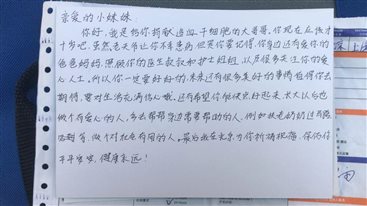 亲爱的小妹妹:
你好,我是给你捐献造血干细胞的大哥哥。你现在应该才
十岁吧,虽然老天爷让你不幸患病,但要记得,你身边还有爱你的
爸爸妈妈,照顾你的医生叔叔和护士姐姐,以及很多关注你的爱
心人士。所以你一定要好好的,未来还有很多美好的事情值得你去
期待,要对生活充满信心哦。还有希望你能快点好起来,长大以后也
做个有爱心的人,多去帮帮身边需要帮助的人,例如扶老奶奶过马路
等,做个对社会有用的人。最后我在北京为你祈祷祝福,保佑你
平平安安,健康永远!